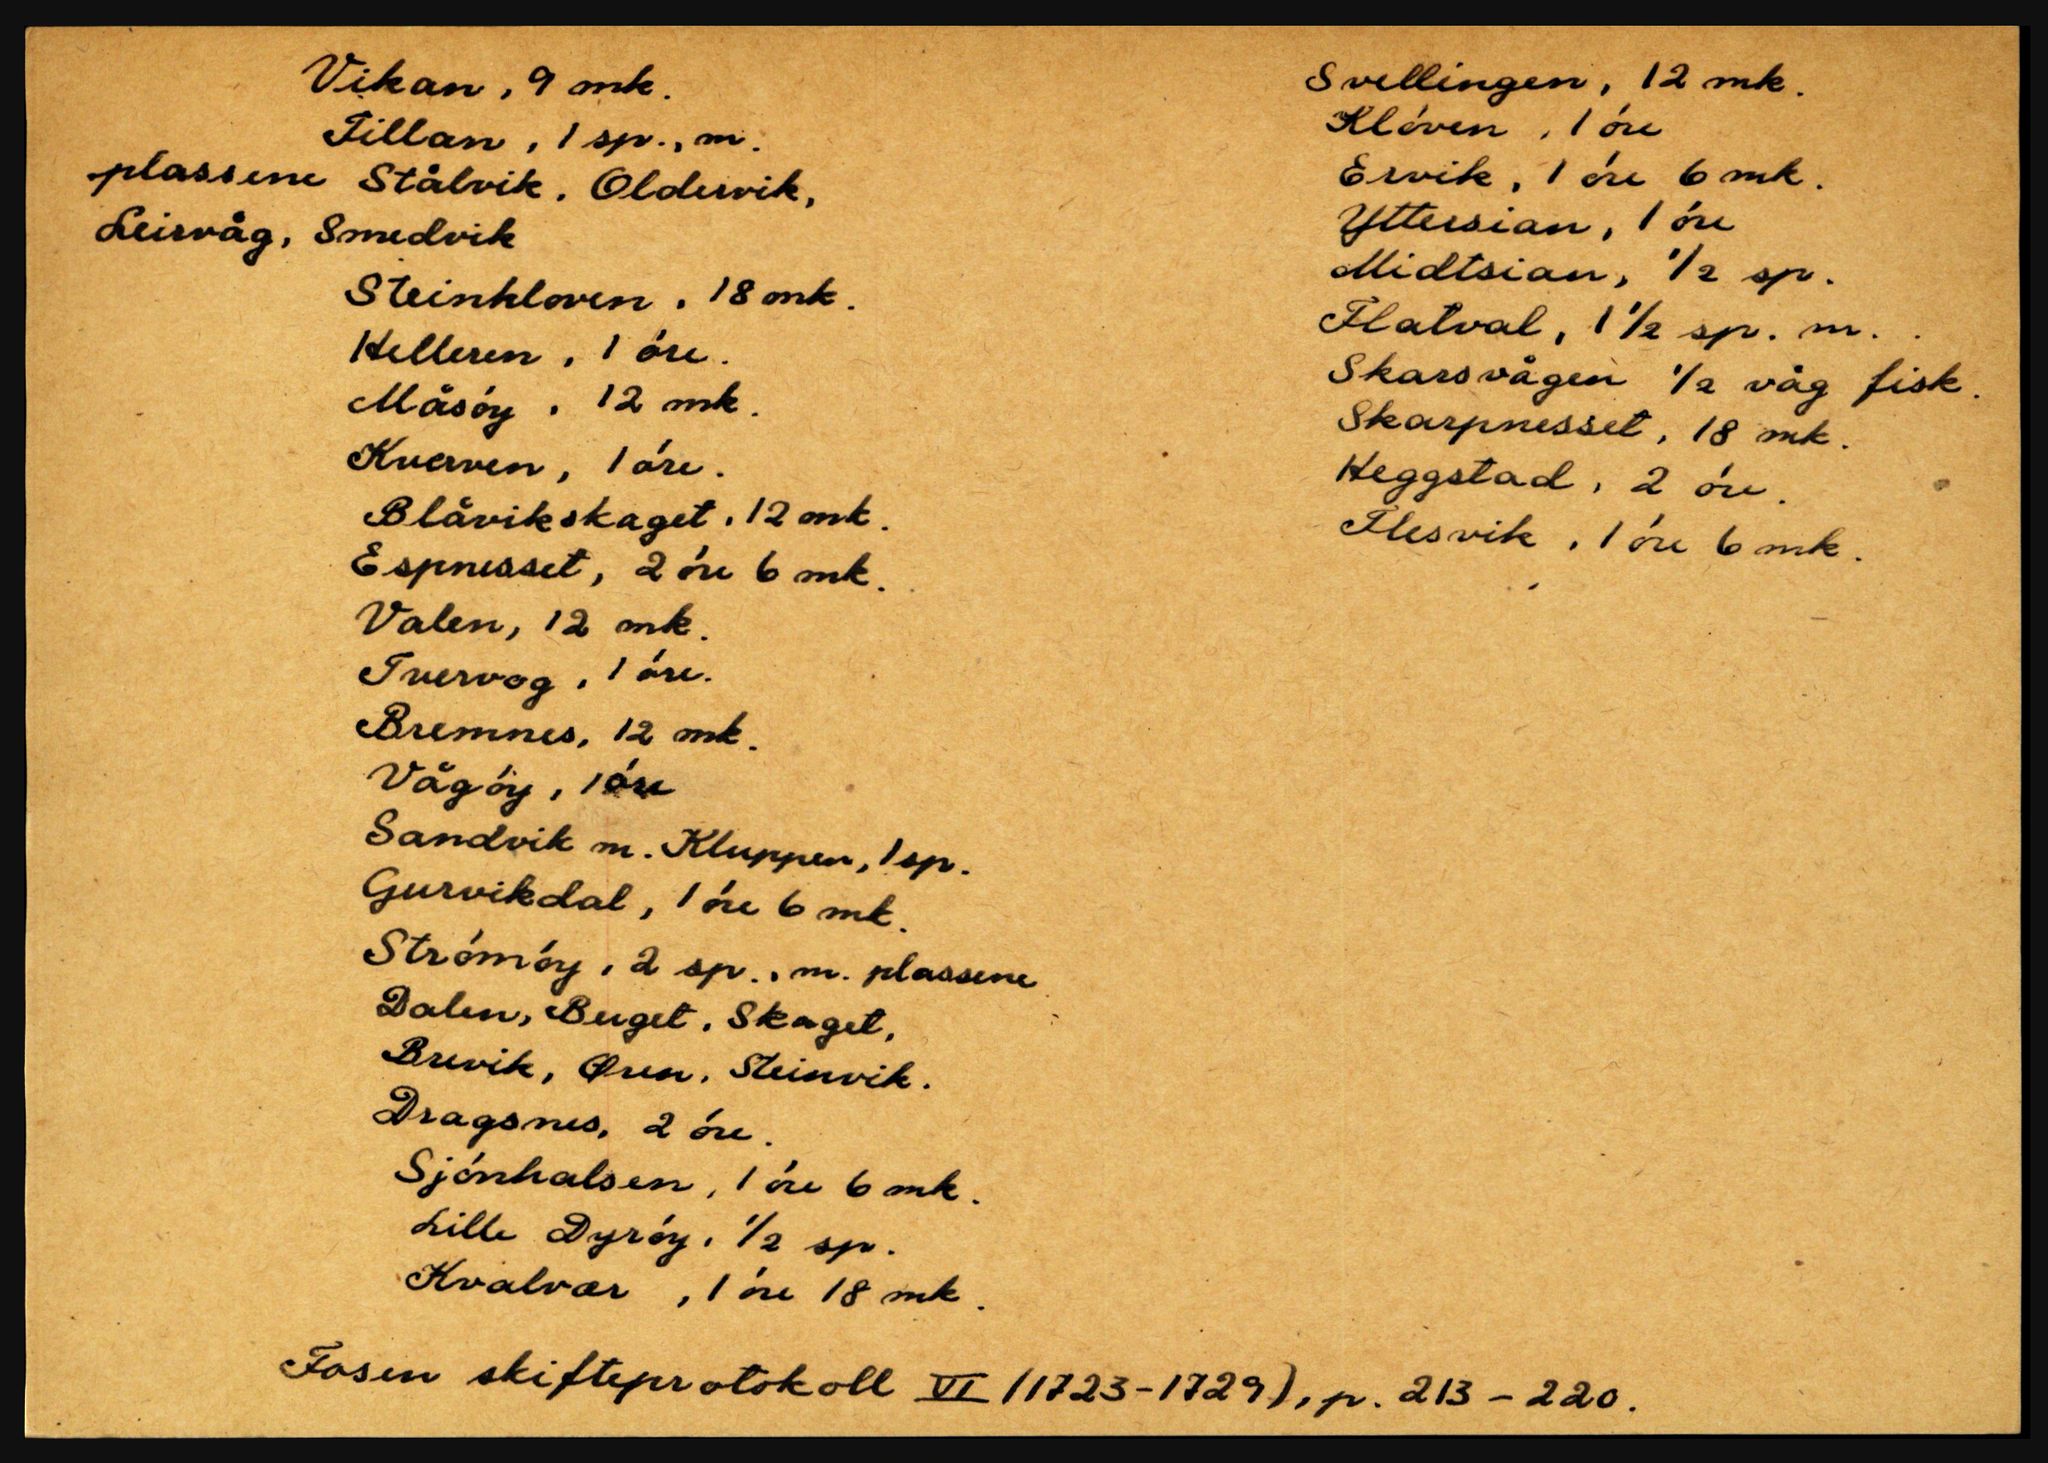 Vikan, 9 mk.
Fillan, 1 sp., m.
plassene Stålvik, Oldervik,
Leirvåg, Smedvik
Steinkloven, 18 mk.
Helleren, 1 óre.
Måsóy, 12 mk.
Kverven, 1 óre.
Blåvikskaget, 12 mk.
Espnesset, 2 óre 6 mk.
Valen, 12 mk.
Tvervog, 1 óre.
Bremnes, 12 mk.
Vågóy, 1 óre
Sandvik m. Kluppen, 1 sp.
Gurvikdal, 1 óre 6 mk.
Strómóy, 2 sp., m. plassene
Dalen, Berget, Skaget,
Brevik, Øren, Steinvik.
Dragsnes, 2 óre.
Sjónhalsen, 1 óre 6 mk.
Lille Dyróy, 1/2 sp.
Kvalvær, 1 óre 18 mk.
Svellingen, 12 mk.
Klóven, 1 óre
Ervik, 1 óre 6 mk.
Yttersian, 1 óre
Midtsian, 1/2 sp.
Flatval, 1 1/2 sp. m.
Skarsvågen 1/2 våg fisk.
Skarpnesset, 18 mk.
Heggstad, 2 óre.
Flesvik, 1 óre 6 mk.
Fosen skifteprotokoll VI (1723-1729), p. 213-220.